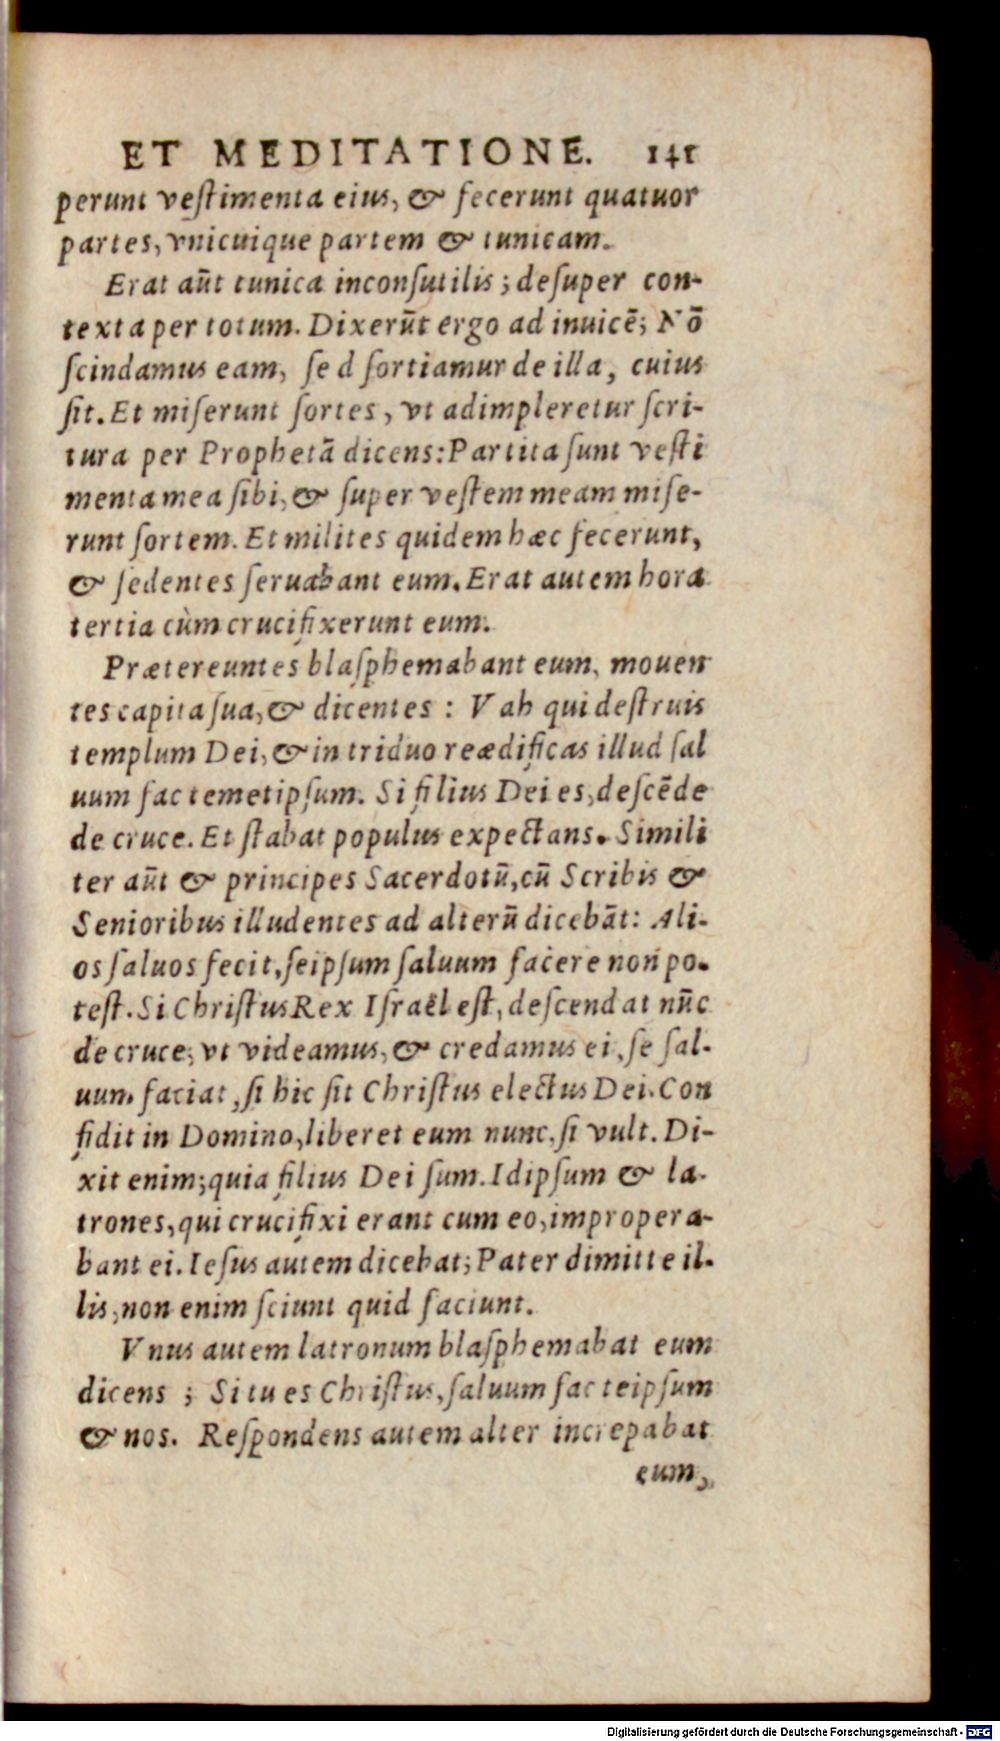 ET MEDITATIONE. 141
perunt veſtimenta eius, & fecerunt quatuor
partes, vnicuique partem & tunicam.
Erat aūt tunica inconſutilis; deſuper con-
texta per totum. Dixerūt ergo ad inuicē; Nō
ſcindamus eam, ſed ſortiamur de illa, cuius
ſit. Et miſerunt ſortes, vt adimpleretur ſcri-
tura per Prophetā dicens: Partita ſunt veſti
menta mea ſibi, & ſuper veſtem meam miſe-
runt ſortem. Et milites quidem hæc fecerunt,
& ſedentes ſeruabant eum. Erat autem hora
tertia cùm crucifixerunt eum.
Prætereuntes blaſphemabant eum, mouen
tes capita ſua, & dicentes : Vah qui deſtruis
templum Dei, & in triduo reædificas illud ſal
uum fac temetipſum. Si filius Dei es, deſcēde
de cruce. Et ſtabat populus expectans. Simili
ter aūt & principes Sacerdotū, cū Scribis &
Senioribus illudentes ad alterū dicebāt: Ali-
os ſaluos fecit, ſeipſum ſaluum facere non po-
teſt. Si Chriſtus Rex Iſraël eſt, deſcendat nūc
de cruce, vt videamus, & credamus ei, ſe ſal-
uum faciat, ſi hic ſit Chriſtus electus Dei. Con
fidit in Domino, liberet eum nunc, ſi vult. Di-
xit enim; quia filius Dei ſum. Idipſum & la-
trones, qui crucifixi erant cum eo, impropera-
bant ei. Ieſus autem dicebat; Pater dimitte il-
lis, non enim ſciunt quid faciunt.
Vnus autem latronum blaſphemabat eum
dicens ; Si tu es Chriſtus, ſaluum fac teipſum
& nos. Reſpondens autem alter increpabat
eum,
Digitalisierung gefördert durch die Deutsche Forschungsgemeinschaft - DFG